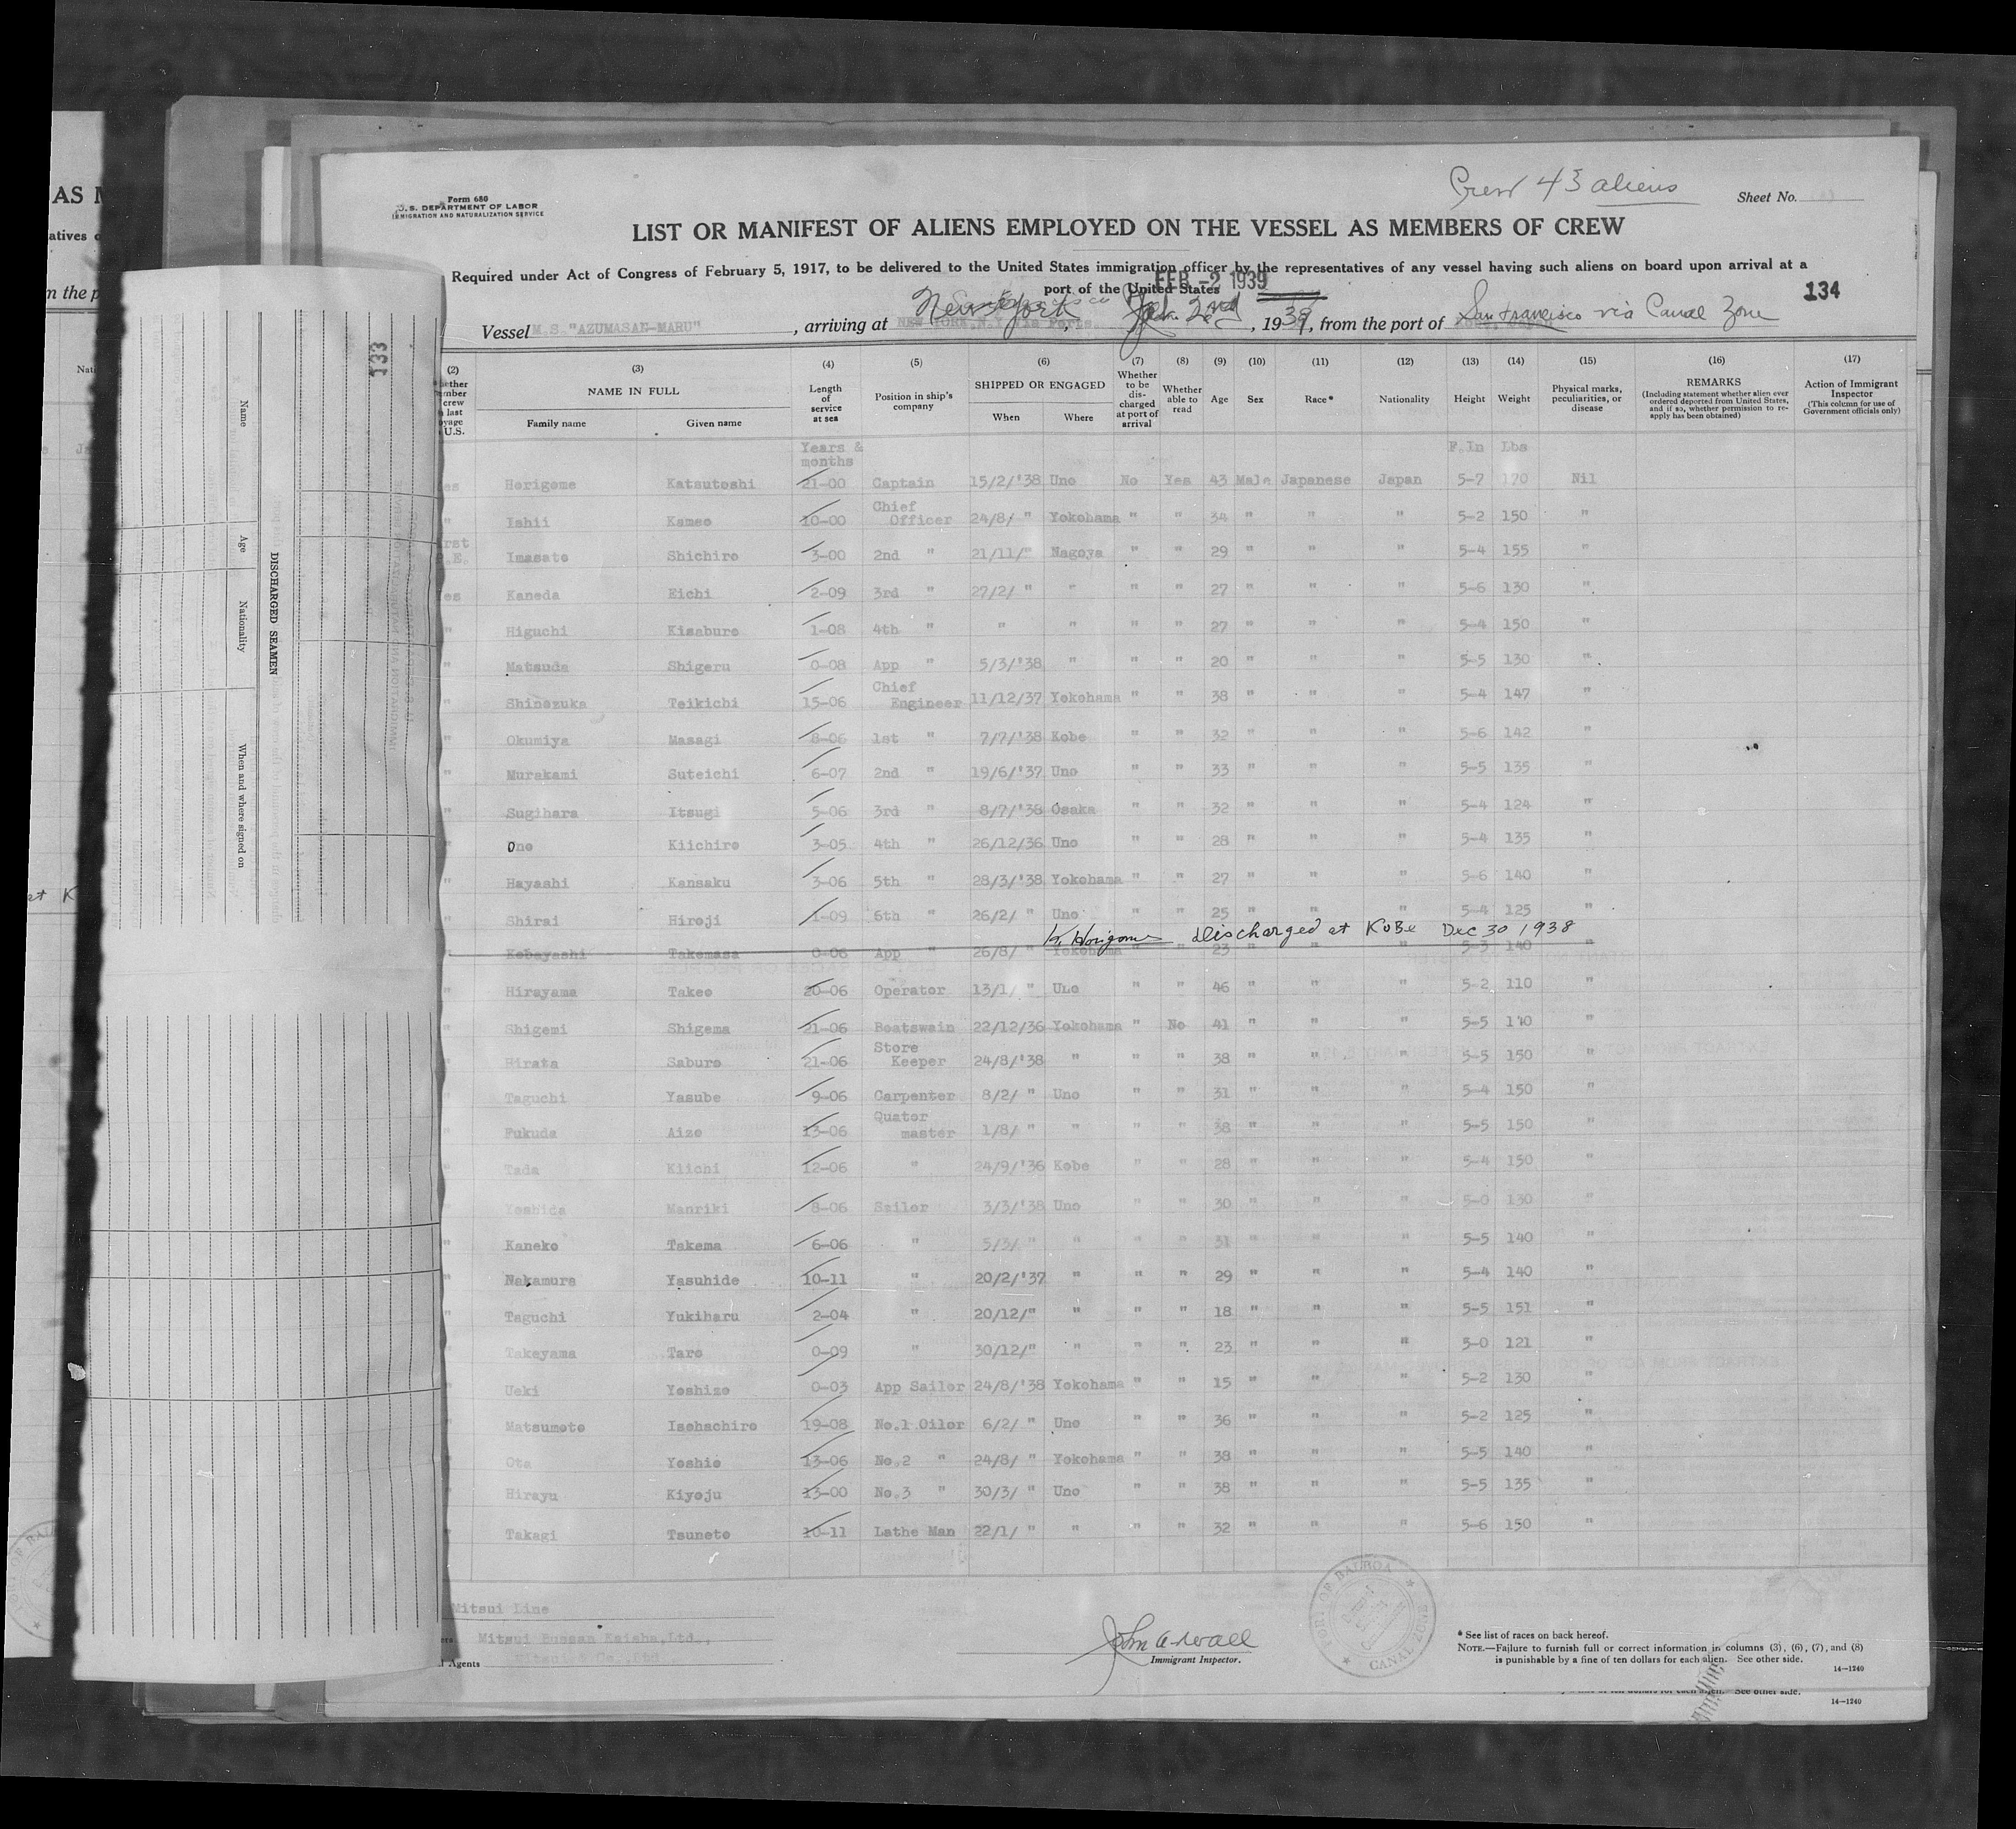 Crew 43 aliens
Form 680
U.S. DEPARTMENT OF LABOR
IMMIGRATION AND NATURALIZATION SERVICE
Sheet No.
LIST OR MANIFEST OF ALIENS EMPLOYED ON THE VESSEL AS MEMBERS OF CREW
Required under Act of Congress of February 5, 1917, to be delivered to the United States immigration officer by the representatives of any vessel having such aliens on board upon arrival at a
port of the United States
FEB -2 1939
134
Vessel M.S. "AZUMASAN-MARU", arriving at New York 2nd, 1939, from the port of San Francisco via Canal Zone
(2) (3) (4) (5) (6) (7) (8) (9) (10) (11) (12) (13) (14) (15) (16) (17)
NAME IN FULL
Family name Given name
Length of service at sea
Position in ship's company
SHIPPED OR ENGAGED
When Where
Whether to be discharged at port of arrival
Whether able to read
Age Sex Race* Nationality Height Weight
Physical marks, peculiarities, or disease
REMARKS
(Including statement whether alien ever ordered deported from United States, and if so, whether permission to re-apply has been obtained)
Action of Immigrant Inspector
(This column for use of Government officials only)
Years & months F.In Lbs
Horigome Katsutoshi 21-00 Captain 15/2/'38 Uno No Yes 43 Male Japanese Japan 5-7 170 Nil
" Ishii Kameo 10-00 Chief Officer 24/8/ " Yokohama " " 34 " " " 5-2 150 "
Imasato Shichiro 3-00 2nd " 21/11/" Nagoya " " 29 " " " 5-4 155 "
Kaneda Eichi 2-09 3rd " 27/2/ " " " " 27 " " " 5-6 130 "
" Higuchi Kisaburo 1-08 4th " " " " " 27 " " " 5-4 150 "
" Matsuda Shigeru 0-08 App " 5/3/'38 " " " 20 " " " 5-5 130 "
" Shinozuka Teikichi 15-06 Chief Engineer 11/12/37 Yokohama " " 38 " " " 5-4 147 "
" Okumiya Masagi 8-06 1st " 7/7/'38 Kobe " " 32 " " " 5-6 142 "
" Murakami Suteichi 6-07 2nd " 19/6/'37 Uno " " 33 " " " 5-5 135 "
" Sugihara Itsugi 5-06 3rd " 8/7/'38 Osaka " " 32 " " " 5-4 124 "
" Ono Kiichiro 3-05 4th " 26/12/36 Uno " " 28 " " " 5-4 135 "
" Hayashi Kansaku 3-06 5th " 28/3/'38 Yokohama " " 27 " " " 5-6 140 "
" Shirai Hiroji 1-09 6th " 26/2/ " Uno " " 25 " " " 5-4 125 "
K. Horigome discharged at Kobe Dec 30 1938
Kobayashi Takemasa 0-06 App " 26/8/ " Yokohama " " 23 5-3 140
" Hirayama Takeo 20-06 Operator 13/1/ " Uno " " 46 " " " 5-2 110 "
" Shigemi Shigema 21-06 Boatswain 22/12/36 Yokohama " No 41 " " " 5-5 140 "
" Hirata Saburo 21-06 Store Keeper 24/8/'38 " " " 38 " " " 5-5 150 "
" Taguchi Yasube 9-06 Carpenter 8/2/ " Uno " " 31 " " " 5-4 150 "
" Fukuda Aizo 13-06 Quater master 1/8/ " " " " 38 " " " 5-5 150 "
" Tada Kiichi 12-06 " 24/9/'36 Kobe " " 28 " " " 5-4 150 "
" Yoshida Manriki 8-06 Sailor 3/3/'38 Uno " " 30 " " " 5-0 130 "
" Kaneko Takema 6-06 " 5/3/ " " " " 31 " " " 5-5 140 "
" Nakamura Yasuhide 10-11 " 20/2/'37 " " " 29 " " " 5-4 140 "
" Taguchi Yukiharu 2-04 " 20/12/" " " " 18 " " " 5-5 151 "
" Takeyama Taro 0-09 " 30/12/" " " " 23 " " " 5-0 121 "
" Ueki Yoshizo 0-03 App Sailor 24/8/'38 Yokohama " " 15 " " " 5-2 130 "
" Matsumoto Isohachiro 19-08 No.1 Oiler 6/2/ " Uno " " 36 " " " 5-2 125 "
" Ota Yoshio 13-06 No.2 " 24/8/ " Yokohama " " 38 " " " 5-5 140 "
" Hirayu Kiyoju 13-00 No.3 " 30/3/ " Uno " " 38 " " " 5-5 135 "
" Takagi Tsuneto 10-11 Lathe Man 22/1/ " " " " 32 " " " 5-6 150 "
Mitsui Line
Mitsui Bussan Kaisha, Ltd.,
Agents Mitsui & Co., Ltd.
John A. Wall
Immigrant Inspector.
PORT OF BALBOA
CANAL ZONE
* See list of races on back hereof.
NOTE.—Failure to furnish full or correct information in columns (3), (6), (7), and (8)
is punishable by a fine of ten dollars for each alien. See other side.
14—1240
See other side.
14—1240
133
DISCHARGED SEAMEN
Name
Age
Nationality
When and where signed on